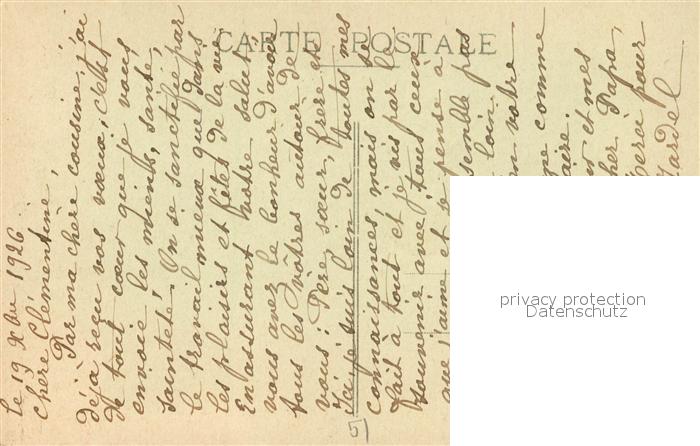 CARTE POSTALE
Le 19 Xbre 1926
Chère Clémentine,
Par ma chère cousine, j'ai
déjà reçu vos vœux, c'est
de tout cœur que je vous
envoie les miens, santé,
sainteté! On se sanctifie par
le travail mieux que dans
les plaisirs et fêtes de la vie
En assurant notre salut
vous avez le bonheur d'avoir
tous les vôtres autour de
vous : Père, sœur, frère et
Ici je suis loin de toutes mes
connaissances, mais on se
fait à tout et je vis par le
souvenir avec tous ceux
que j'aime et je pense à
semble pas
loin
en votre
me comme
aire.
et mes
cher Papa,
Merci pour
privacy protection
Datenschutz
5